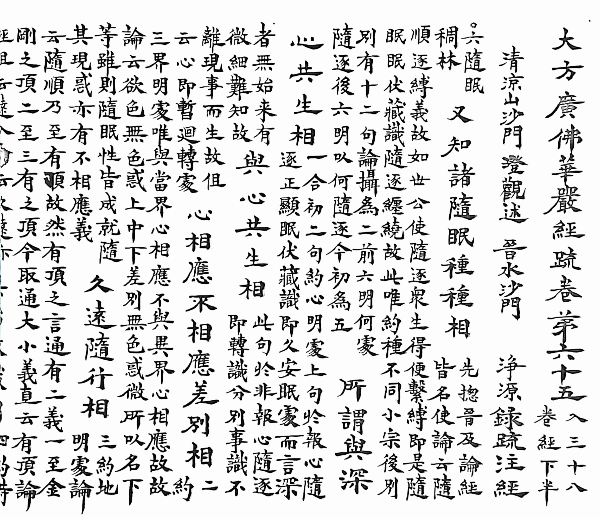 大方廣佛華嚴經疏卷第六十五 入三十八
卷經下半
清凉山沙門 澄觀述 晉水沙門 淨源錄疏注經
○六隨眠
稠林
又知諸隨眠種種相
先惣晉及論經
皆名使論云隨
順逐縛義故如世公使隨逐衆生得便繫縛即是隨
眠眠伏藏識隨逐纏繞故此唯約種不同小宗後別
別有十二句論攝為二前六明何處
隨逐後六明以何隨逐今初為五
所謂與深
心共生相
一合初二句約心明處上句於報心隨
逐正顯眠伏藏識即久安眠處而言深
者無始来有
微細難知故
與心共生相
此句於非報心隨逐
即轉識分別事識不
離現事而生故但
云心即暫迴轉處
心相應不相應差別相
二約
三界明處唯與當界心相應不與異界心相應故
論云欲色無色惑上中下差別無色惑微所以名下
等雖則隨眠性皆成就隨
其現惑亦有不相應義
久遠隨行相
三約地
明處論
云隨順乃至有頂故然有頂之言通有二義一至金
剛之頂二至三有之頂今取通大小義直云有頂論